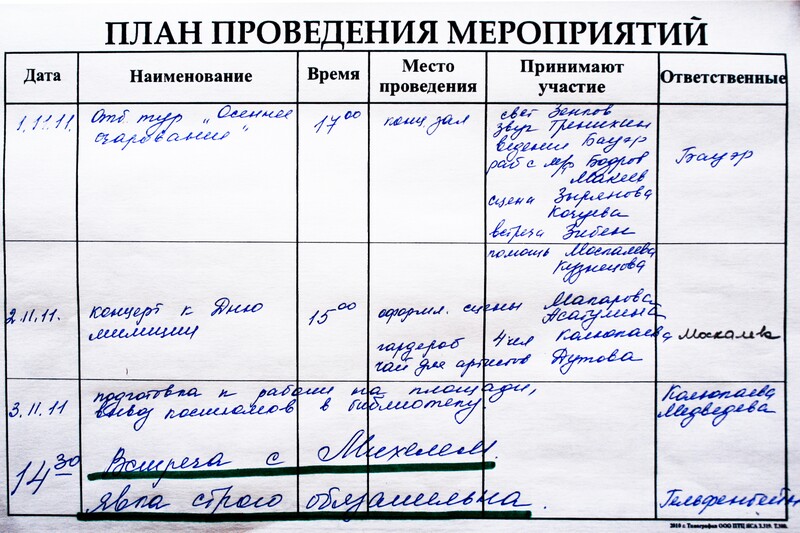 ПЛАН ПРОВЕДЕНИЯ МЕРОПРИЯТИЙ
Дата Наименование Время Место проведения Принимают участие Ответственные
1.11.11. Отб. тур „Осеннее
очарование"
17 00
конц. зал
свет Зенков
звук Тренихин
ведения Бауэр
раб с мр Бодров
Макеев
сцена Зырянова
Кочуева
встреча Зибен
помощь Москалева
Кузнецова
Бауэр
2.11.11. концерт к Дню
милиции
15 00
оформл. сцены Мапарова
Асатулина
гардероб 4 чел Колюпаева
чай для артистов Дутова
Москалева
3.11.11 подготовка к работе на площади,
вывоз костюмов в библиотеку.
Колюпаева
Медведева
14 30 Встреча с Михелем.
явка строго обязательна.
Гельфенбейн
2010 г. Типография ООО ПТЦ ЯСА З.319. Т.300.